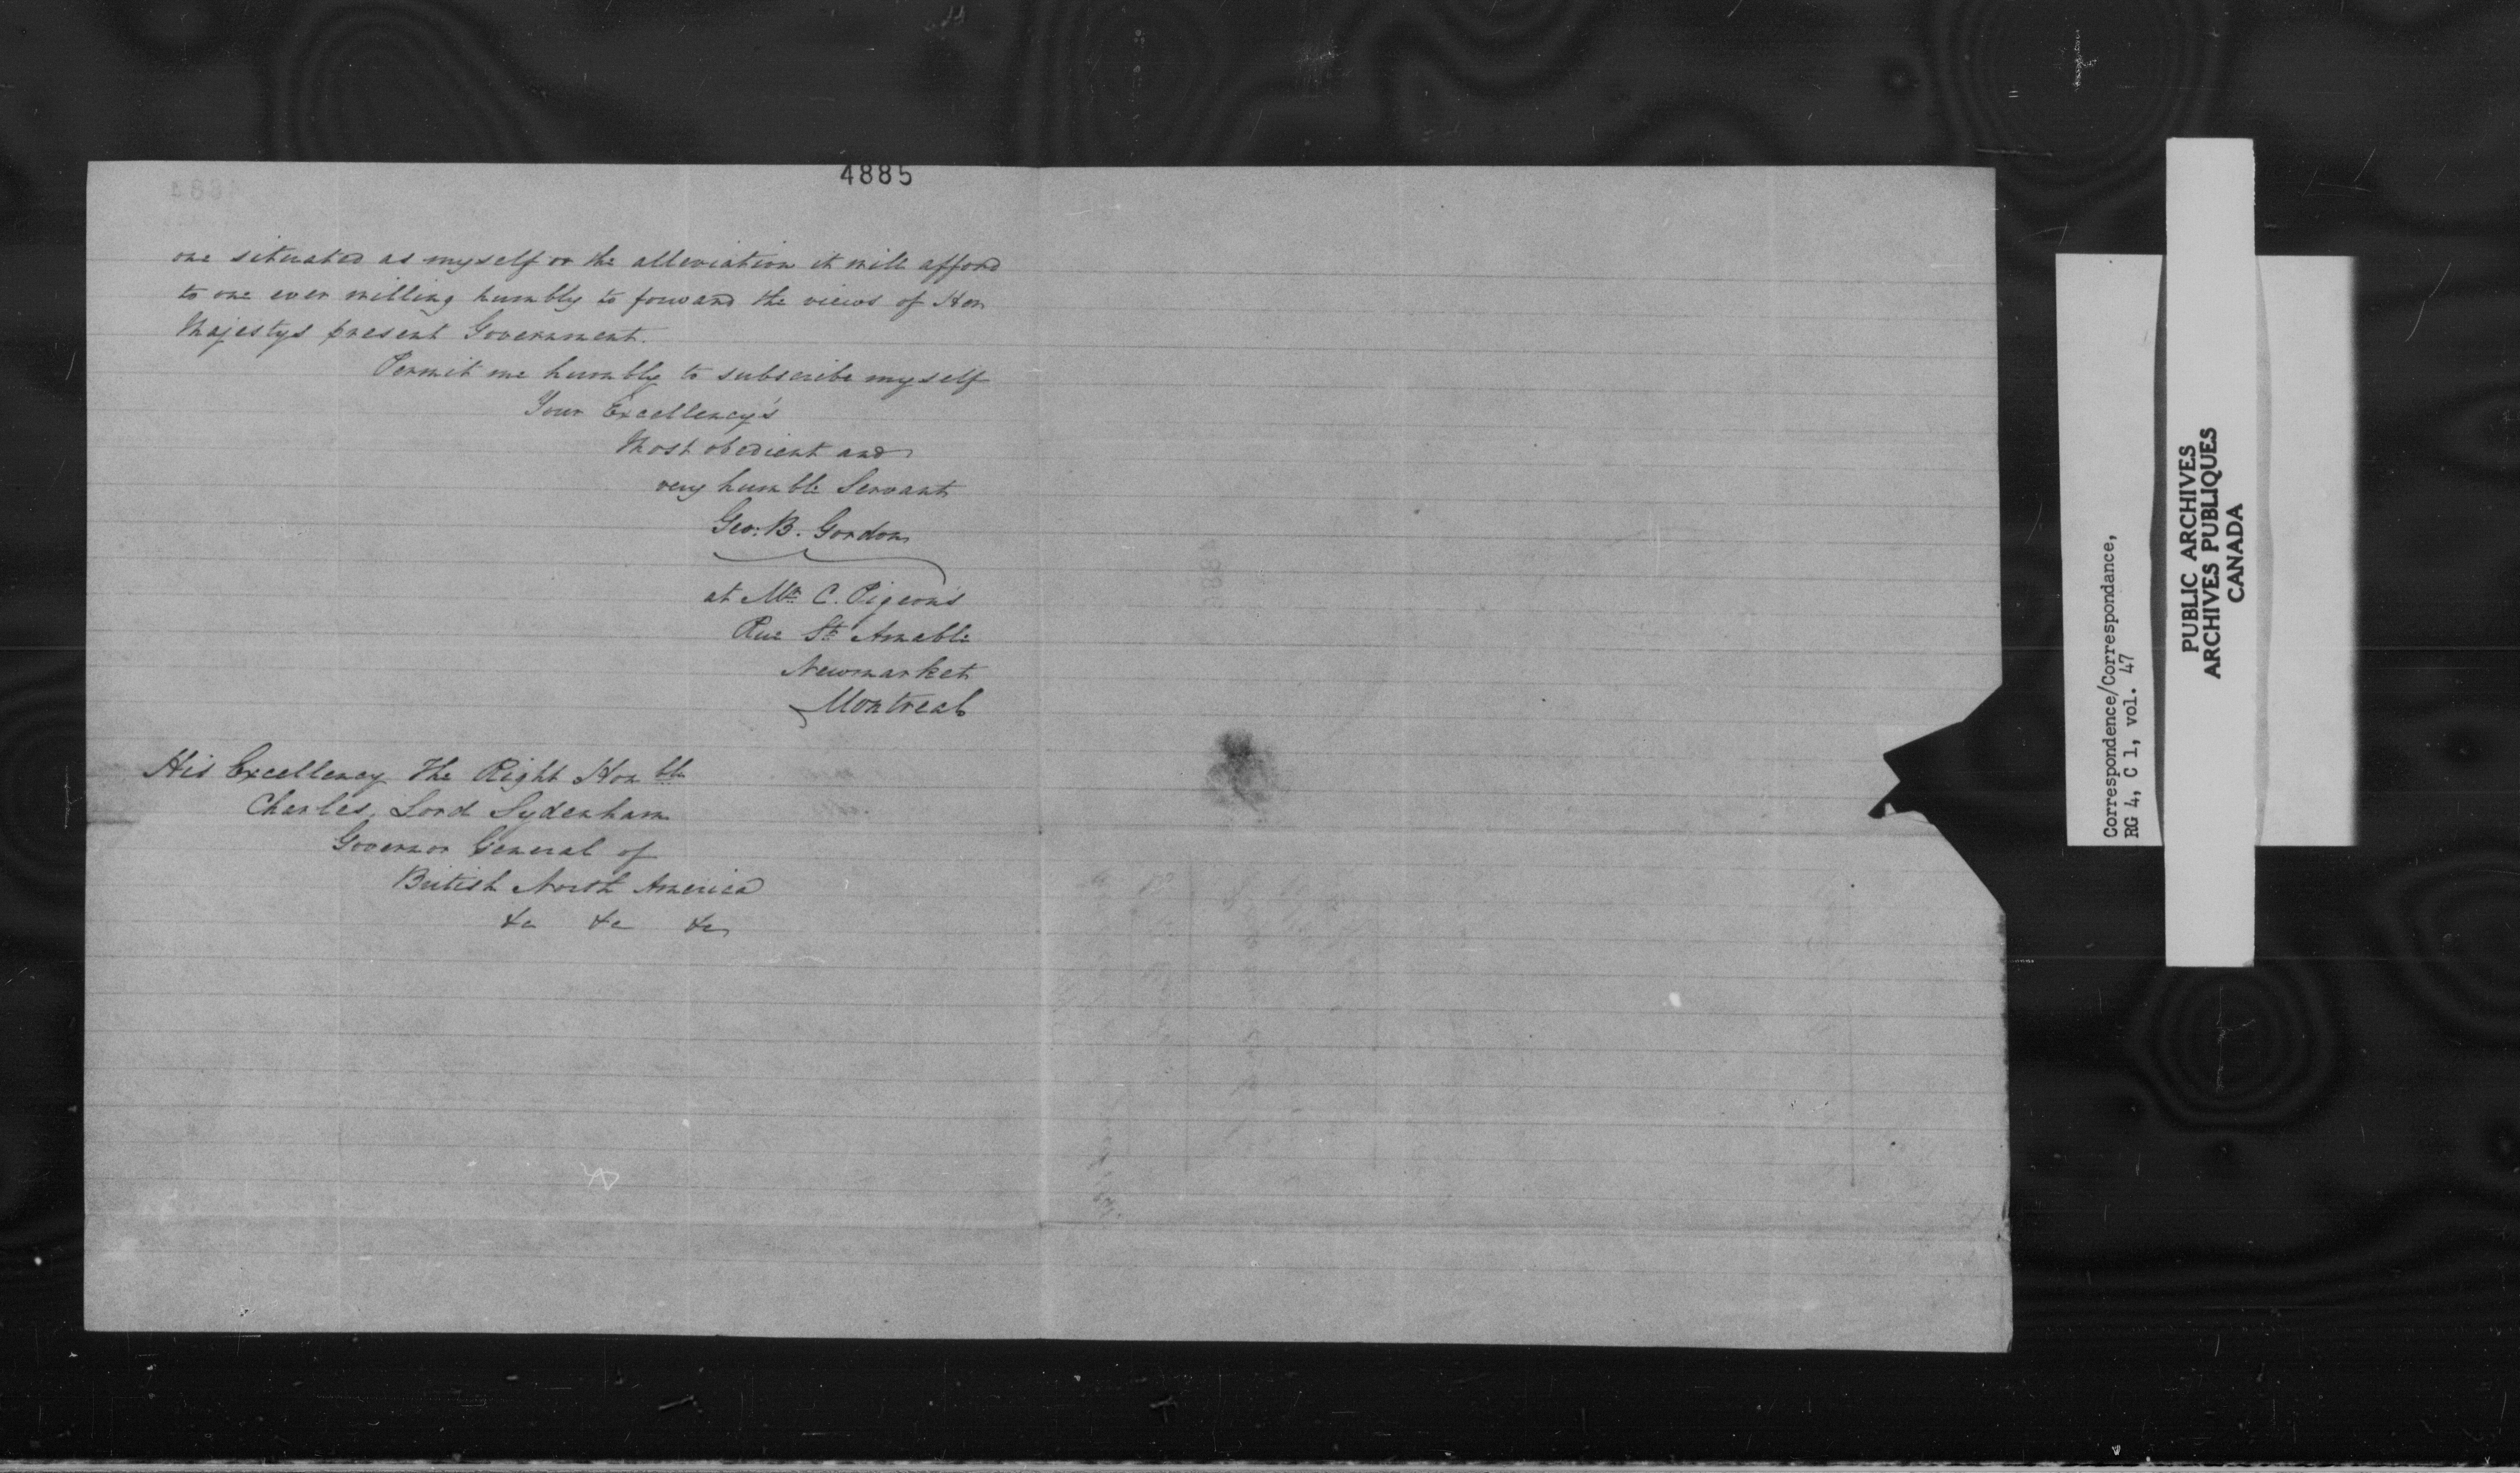 4885
one situated as myself or the alleviation it will afford
to one ever willing humbly to forward the views of Her
Majestys present Government.
Permit me humbly to subscribe myself
Your Excellency's
Most obedient and
very humble Servant
Geo. B. Gordon
at Mr. C. Pigeon's
Rue St. Amable
Newmarket
Montreal
His Excellency The Right Honble
Charles, Lord Sydenham
Governor General of
British North America
&c &c &c
Correspondence/Correspondance,
RG 4, C 1, vol. 47
PUBLIC ARCHIVES
ARCHIVES PUBLIQUES
CANADA